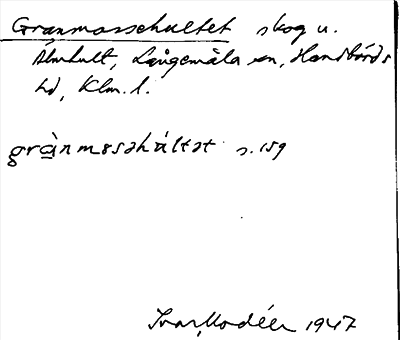 Granmossehultet skog u.
Älmhult, Långemåla sn, Handbörds
hd, Klm. l.
grànmɷsəhúltət s. 159
Ivar Modéer 1947